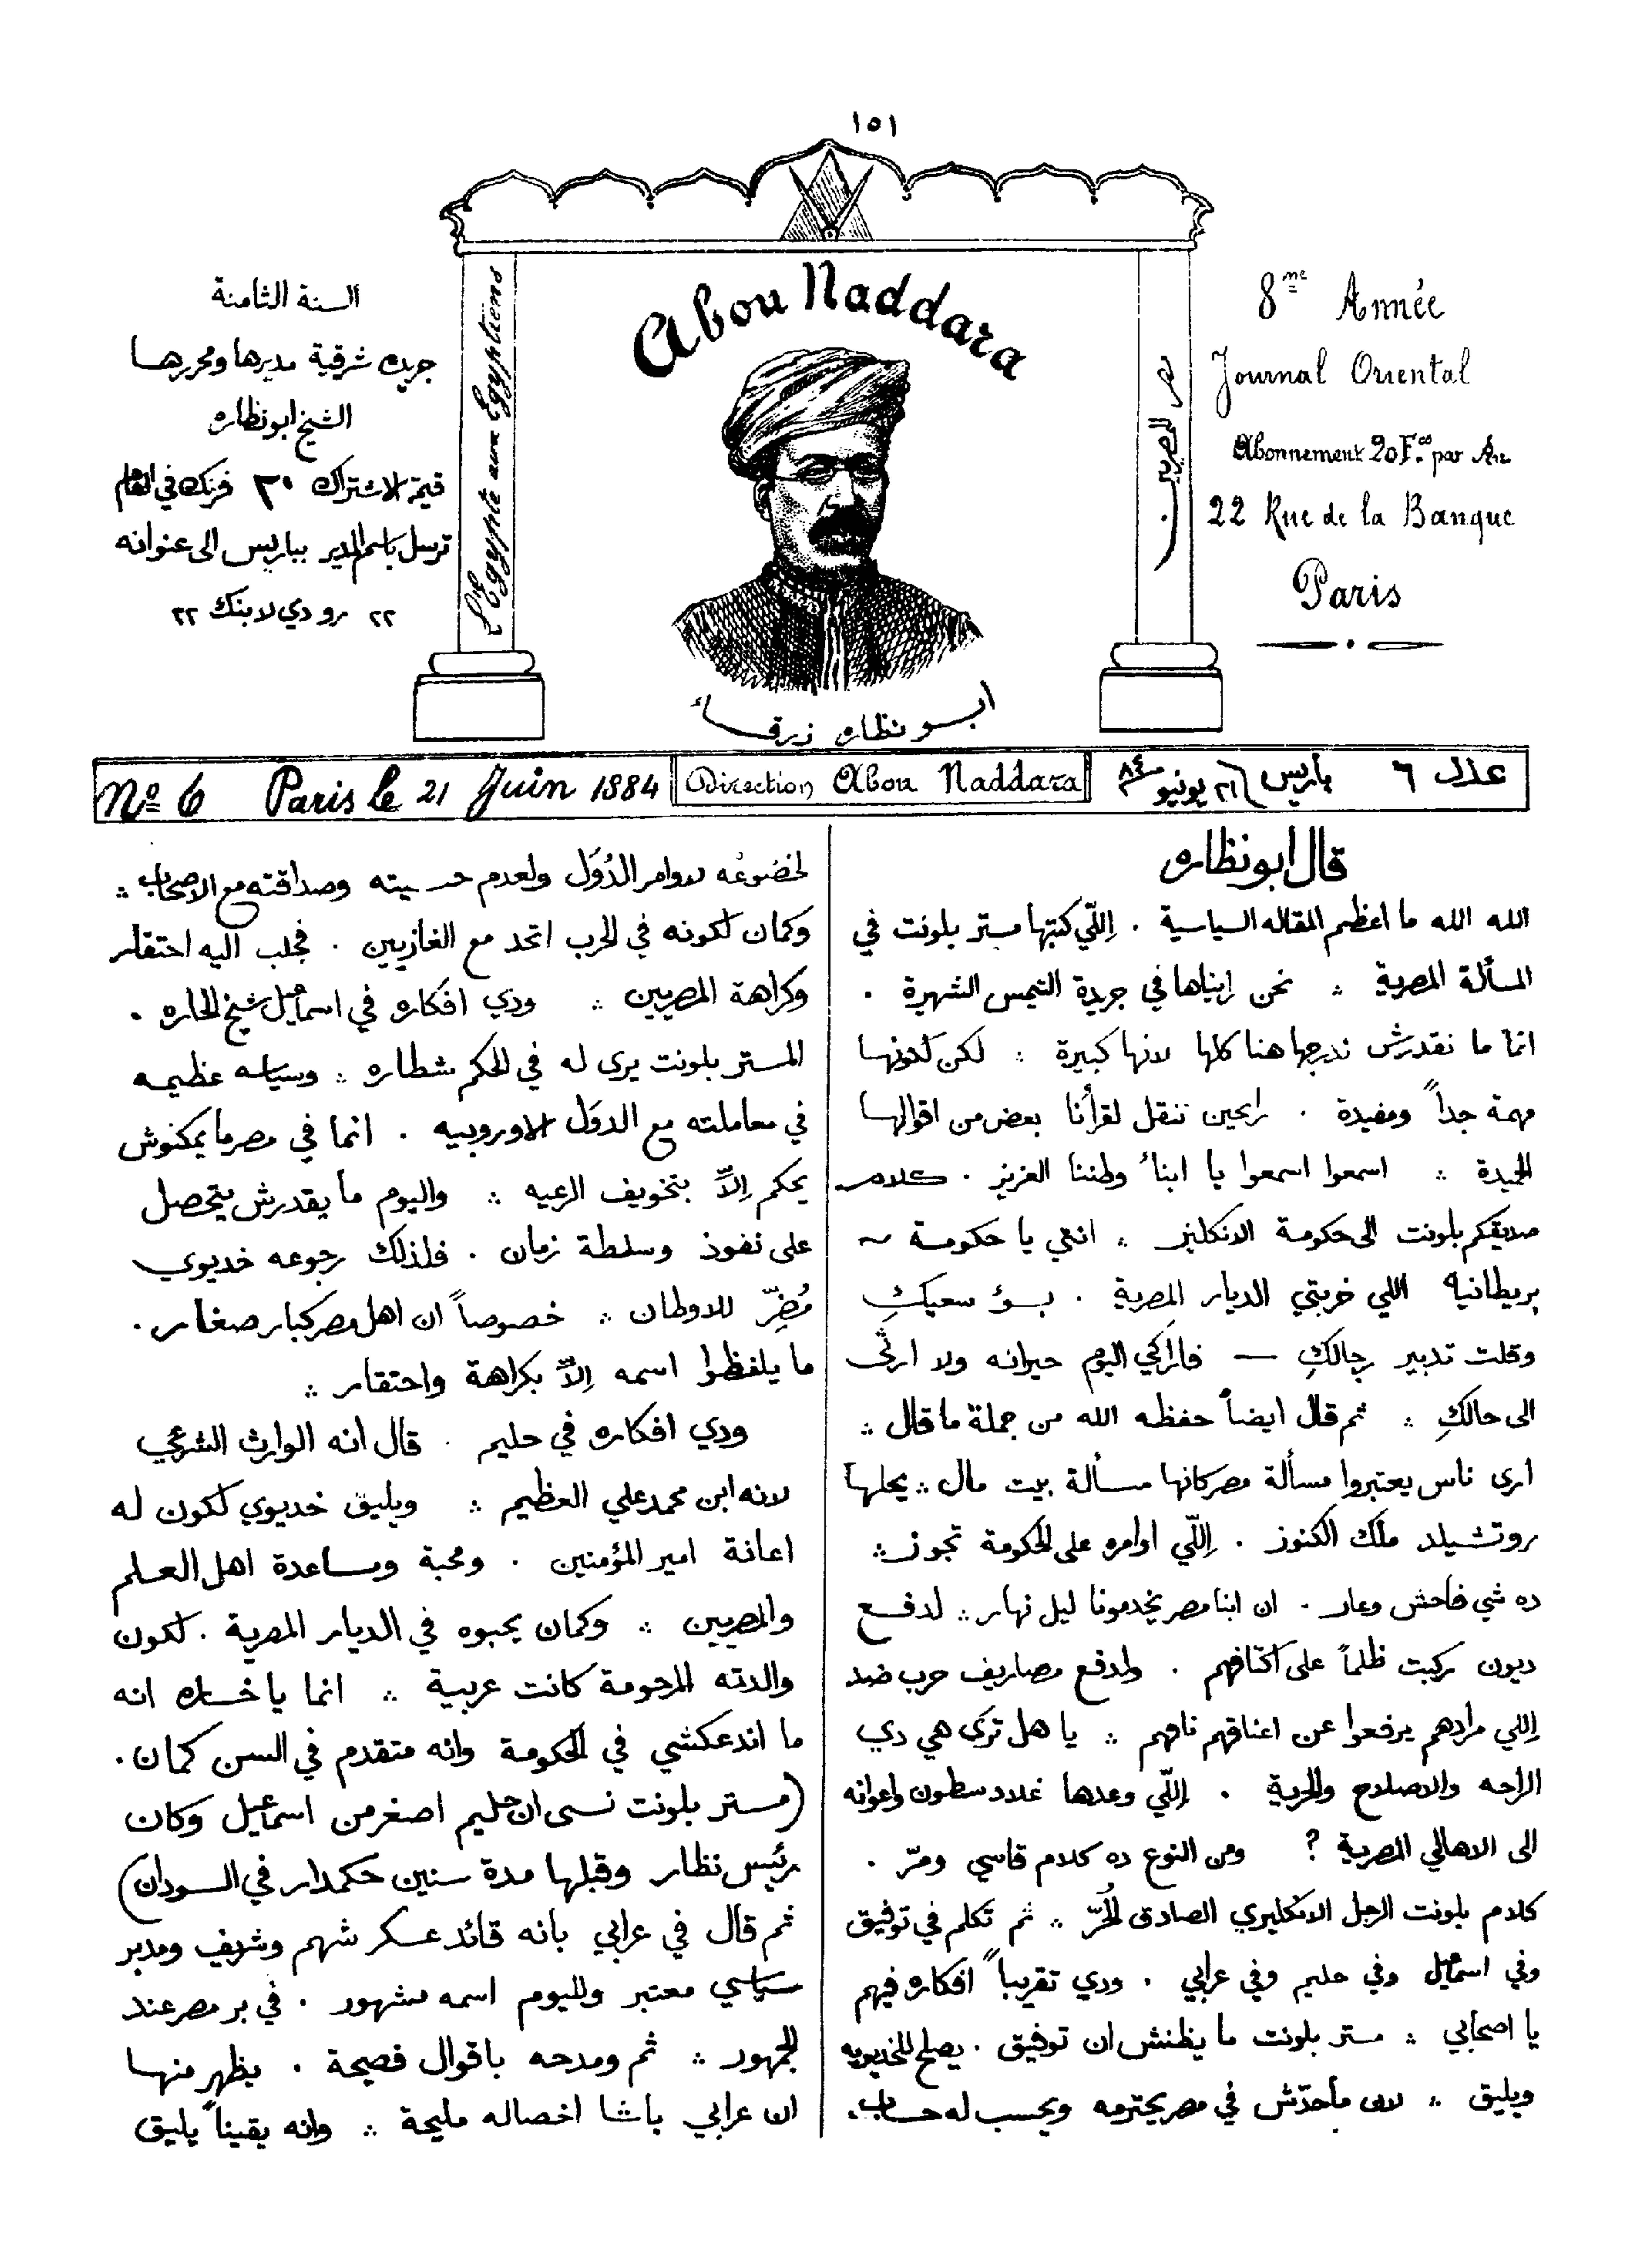 ١٥١
السنة الثامنة
جريدة شرقية مديرها ومحررها
الشيخ ابو نظاره
قيمة الاشتراك ٢٠ فرنك في العام
ترسل باسم المدير بباريس الى عنوانه
٢٢ رو دي لا بنك ٢٢
L'Egypte aux Egyptiens
Abou Naddara
ابو نظاره زرقاء
مصر للمصريين
8me Année
Journal Oriental
Abonnement 20 Fcs. par An
22 Rue de la Banque
Paris
No 6 Paris le 21 Juin 1884
Direction Abou Naddara
عدد ٦ باريس ٢١ يونيو ٨٤
قال ابو نظاره
الله الله ما اعظم المقاله السياسية . اللّي كتبها مستر بلونت في
المسألة المصرية ؞ نحن رايناها في جريدة التيمس الشهيرة .
انما ما نقدرش ندرجها هنا كلها لانها كبيرة ؞ لكن لكونها
مهمة جداً ومفيدة . رايحين ننقل لقرأنا بعض من اقوالها
الجيدة ؞ اسمعوا اسمعوا يا ابناء وطننا العزيز . كلام
صديقكم بلونت الى حكومة الانكليز ؞ انتي يا حكومة
بريطانيه اللي خربتي الديار المصرية . بسوء سعيكِ
وقلت تدبير رجالكِ — فاراكي اليوم حيرانه ولا ارثى
الى حالكِ ؞ ثم قال ايضاً حفظه الله من جملة ما قال ؞
ارى ناس يعتبروا مسألة مصر كانها مسألة بيت مال ؞ يحلها
روتشيلد ملك الكنوز . اللّي اوامره على الحكومة تجوز ؞
ده شي فاحش وعار . ان ابنا مصر يخدمونا ليل نهار ؞ لدفع
ديون ركبت ظلماً على اكتافهم . ولدفع مصاريف حرب ضد
اللي مرادهم يرفعوا عن اعناقهم نافهم ؞ يا هل ترى هي دي
الراحه والاصلاح والحرية . اللّي وعدها غلادسطون واعوانه
الى الاهالي المصرية ? ومن النوع ده كلام قاسي ومرّ .
كلام بلونت الرجل الانكليزي الصادق الحُرّ ؞ ثم تكلم في توفيق
وفي اسمعيل وفي حليم وفي عرابي . ودي تقريباً افكاره فيهم
يا اصحابي ؞ مستر بلونت ما يظنش ان توفيق . يصلح للخديويه
ويليق ؞ لان ماحدّش في مصر يحترمه ويحسب له حساب .
لخضوعُه لاوامر الدُوَل ولعدم حسيته وصداقته مع الاصحاب ؞
وكمان لكونه في الحرب اتحد مع الغازيين . فجلب اليه احتقار
وكراهة المصريين ؞ ودي افكاره في اسمعيل شيخ الحاره .
المستر بلونت يرى له في الحكم شطاره ؞ وسياسه عظيمه
في معاملته مع الدوَل الاوروبيه . انما في مصر ما يمكنوش
يحكم اِلاّ بتخويف الرعيه ؞ واليوم ما يقدرش يتحصل
على نفوذ وسلطة زمان . فلذلك رجوعه خديوي
مُضِرّ للاوطان ؞ خصوصاً ان اهل مصر كبار صغار .
ما يلفظوا اسمه اِلاّ بكراهة واحتقار ؞
ودي افكاره في حليم . قال انه الوارث الشرعي
لانه ابن محمد علي العظيم ؞ ويليق خديوي لكون له
اعانة امير المؤمنين . ومحبة ومساعدة اهل العلم
والمصريين ؞ وكمان يحبوه في الديار المصرية . لكون
والدته المرحومة كانت عربية ؞ انما يا خساره انه
ما اندعكشي في الحكومة وانه متقدم في السن كمان .
(مستر بلونت نسى ان حليم اصغر من اسمعيل وكان
رئيس نظار وقبلها مدة سنين حكمدار في السودان)
ثم قال في عرابي بانه قائد عسكر شهم وشريف ومدبر
سياسي معتبر ولليوم اسمه مشهور . في بر مصر عند
الجمهور ؞ ثم ومدحه باقوال فصيحة . يظهر منها
ان عرابي باشا اخصاله مليحة ؞ وانه يقيناً يليق